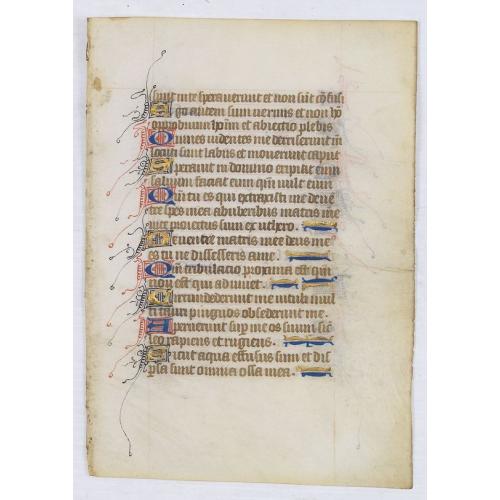 sunt in te speraverunt et non sũt cõfusi
Ego autem sum vermis et non hõ
opprobrium hoĩm et abiectio plebis
Omnes videntes me deriserunt m̃
locuti sunt labiis et moverunt caput
Speravit in domino eripiat eum
salvum faciat eum qm̃ vult eum
Qm̃ tu es qui extraxisti me de vẽ
tre spes mea ab uberibus matris mee
in te proiectus sum ex utero.
De ventre matris mee deus me
es tu ne discesseris a me.
Qm̃ tribulatio proxima est qm̃
non est qui adiuvet.
Circumdederunt me vituli mul
ti tauri pingues obsederunt me.
Aperuerunt sup̃ me os suum sic̃
leo rapiens et rugiens.
Sicut aqua effusus sum et dis
p̃sa sunt omnia ossa mea.